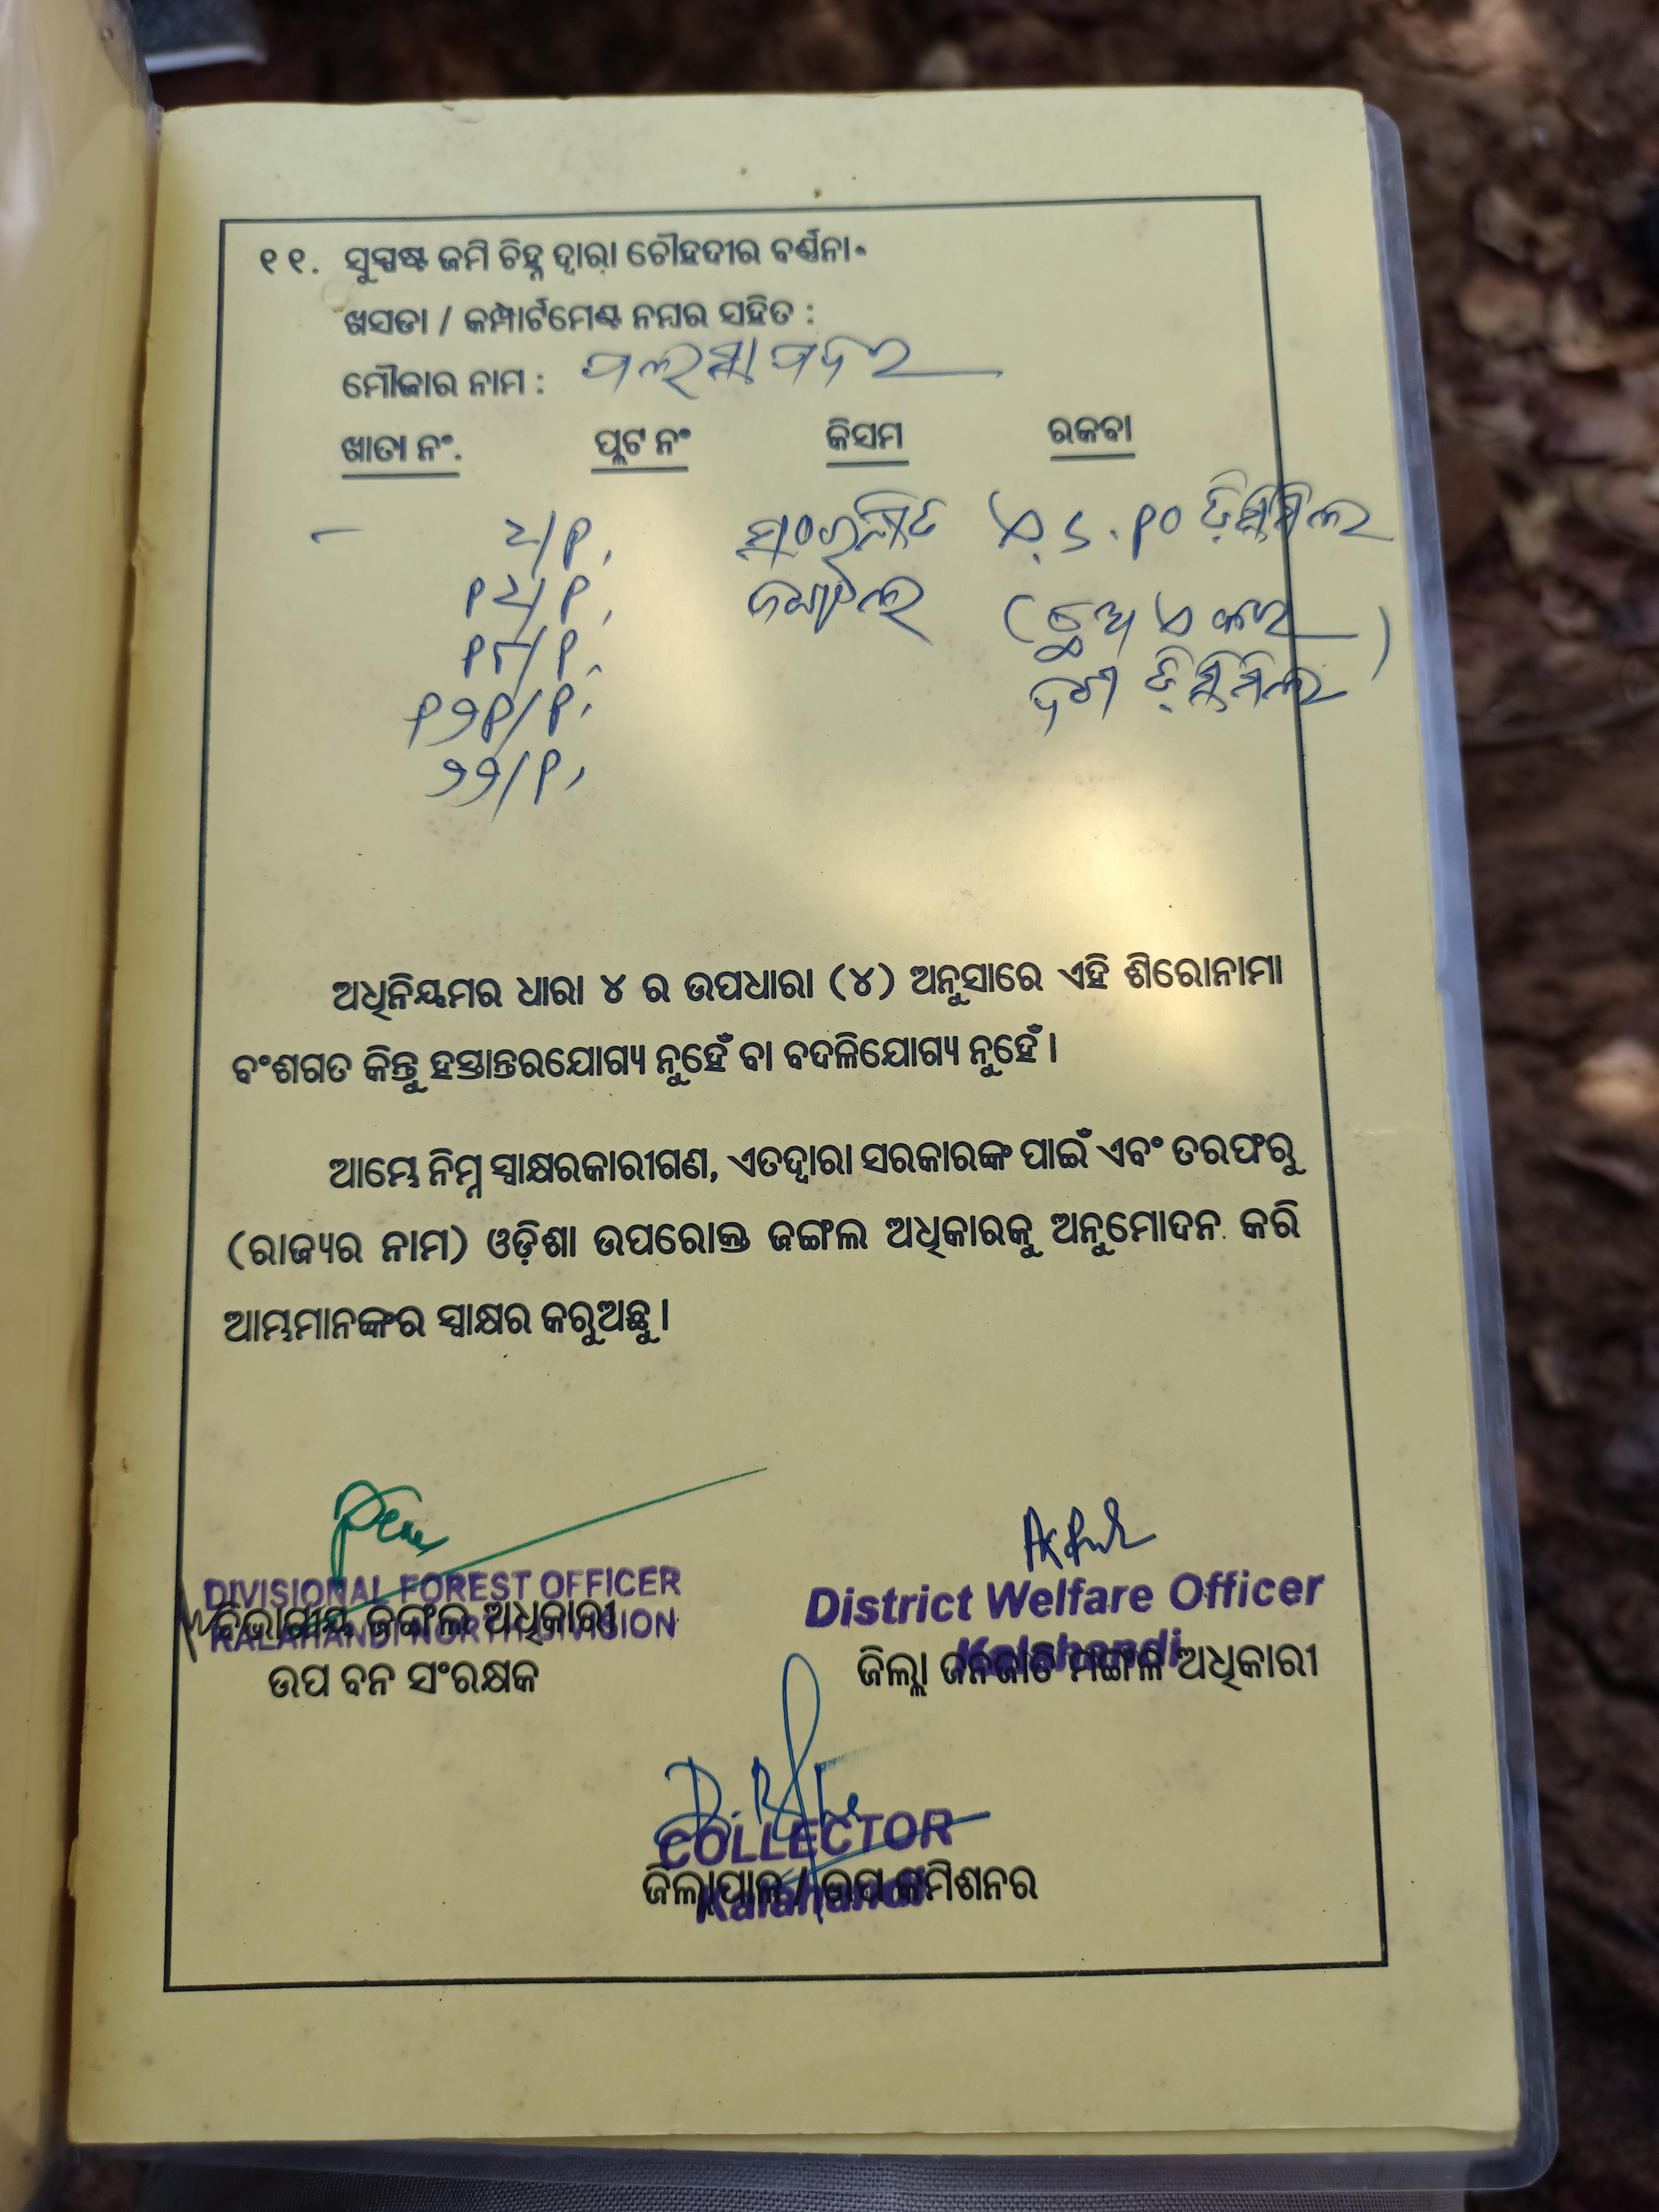 ୧୧. ସୁସ୍ପଷ୍ଟ ଜମି ଚିହ୍ନ ଦ୍ୱାରା ଚୌହଦୀର ବର୍ଣ୍ଣନା
ଖସଡା / କମ୍ପାର୍ଟମେଣ୍ଟ ନମ୍ବର ସହିତ :
ମୌଜାର ନାମ :
ଖାତା ନଂ. ପ୍ଲଟ ନଂ କିସମ ରକବା
– ୪/୧, ସଂରକ୍ଷିତ ଏ.୬.୧୦ ଡ଼ିସିମିଲ
୧୪/୧, ଜଙ୍ଗଲ (ଛଅ ଏକର
୧୮/୧, ଦଶ ଡ଼ିସିମିଲ)
୧୨୧/୧,
୨୨/୧,
ଅଧିନିୟମର ଧାରା ୪ ର ଉପଧାରା (୪) ଅନୁସାରେ ଏହି ଶିରୋନାମା
ବଂଶଗତ କିନ୍ତୁ ହସ୍ତାନ୍ତରଯୋଗ୍ୟ ନୁହେଁ ବା ବଦଳିଯୋଗ୍ୟ ନୁହେଁ ।
ଆମ୍ଭେ ନିମ୍ନ ସ୍ୱାକ୍ଷରକାରୀଗଣ, ଏତଦ୍ଦ୍ୱାରା ସରକାରଙ୍କ ପାଇଁ ଏବଂ ତରଫରୁ
(ରାଜ୍ୟର ନାମ) ଓଡ଼ିଶା ଉପରୋକ୍ତ ଜଙ୍ଗଲ ଅଧିକାରକୁ ଅନୁମୋଦନ କରି
ଆମ୍ଭମାନଙ୍କର ସ୍ୱାକ୍ଷର କରୁଅଛୁ ।
DIVISIONAL FOREST OFFICER
ବିଭାଗୀୟ ଜଙ୍ଗଲ ଅଧିକାରୀ
KALAHANDI NORTH DIVISION
ଉପ ବନ ସଂରକ୍ଷକ
District Welfare Officer
Kalahandi
ଜିଲ୍ଲା ଜନଜାତି ମଙ୍ଗଳ ଅଧିକାରୀ
COLLECTOR
ଜିଲ୍ଲାପାଳ / ଉପ କମିଶନର
Kalahandi